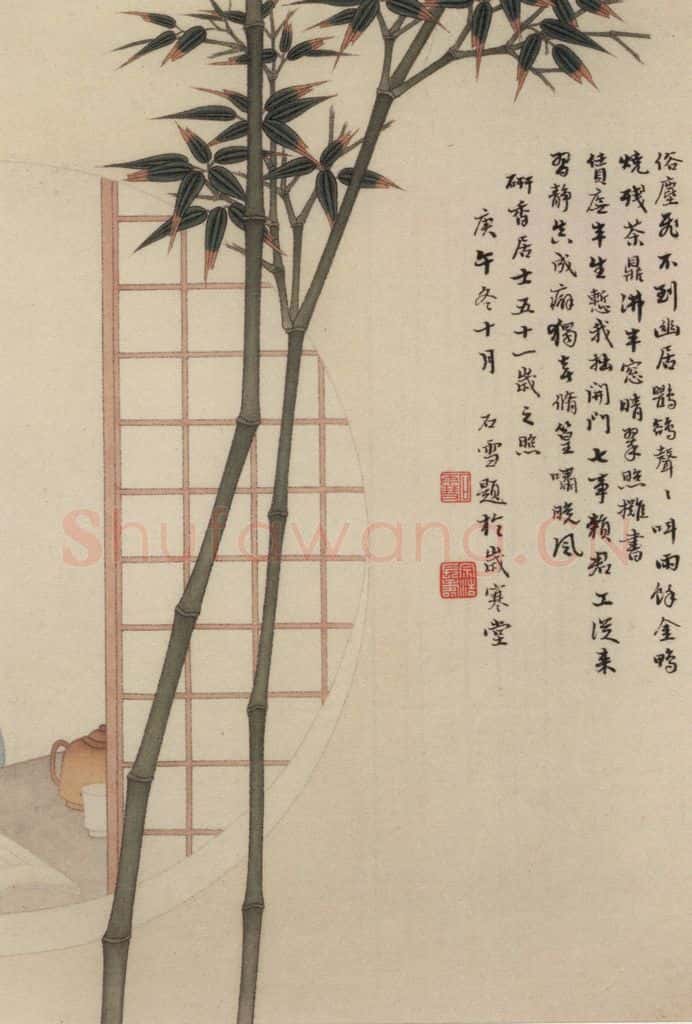 俗塵飛不到幽居鵓鴣聲〻叫雨餘金鴨
燒殘茶鼎沸半窓晴翠照攤書
賃廡半生慙我拙開門七事賴君工從来
習靜真成癖獨喜脩篁嘯晚風
研香居士五十一歲之照
庚午冬十月 石雪題於歲寒堂
石雪
宗浩長壽
Shufawang.CN